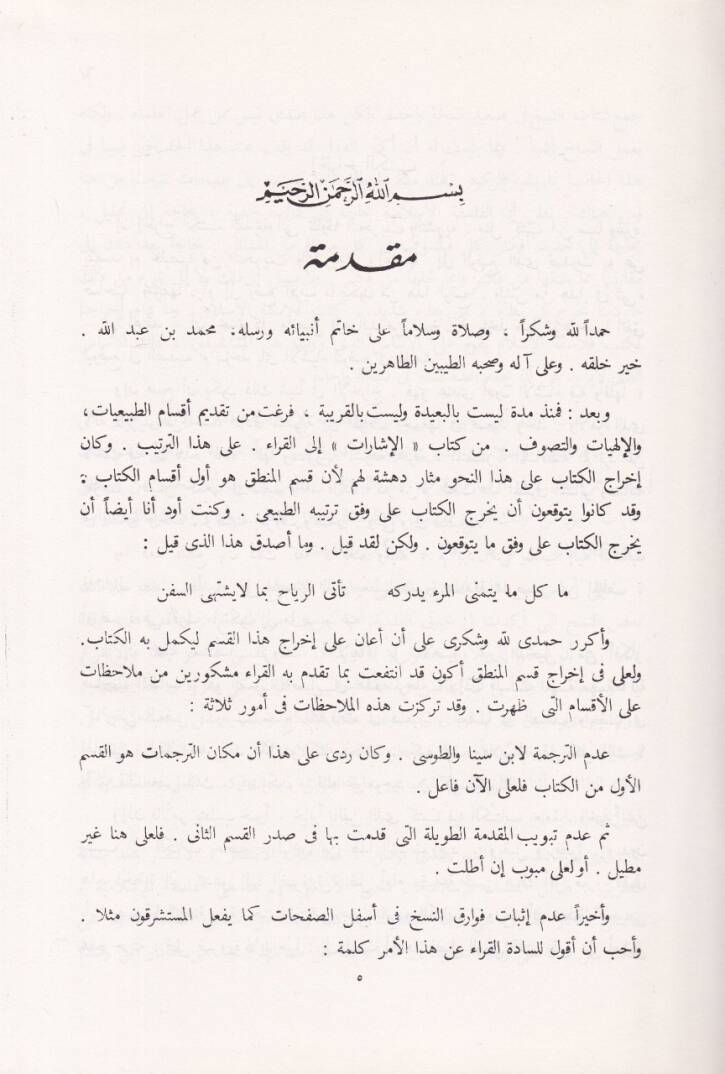 بسم الله الرحمن الرحيم
مقدمة
حمداً لله وشكراً ، وصلاة وسلاماً على خاتم أنبيائه ورسله، محمد بن عبد الله .
خير خلقه . وعلى آله وصحبه الطيبين الطاهرين .
وبعد : فمنذ مدة ليست بالبعيدة وليست بالقريبة ، فرغت من تقديم أقسام الطبيعيات،
والإلهيات والتصوف . من كتاب « الإشارات » إلى القراء . على هذا الترتيب . وكان
إخراج الكتاب على هذا النحو مثار دهشة لهم لأن قسم المنطق هو أول أقسام الكتاب ؛
وقد كانوا يتوقعون أن يخرج الكتاب على وفق ترتيبه الطبيعى . وكنت أود أنا أيضاً أن
يخرج الكتاب على وفق ما يتوقعون . ولكن لقد قيل . وما أصدق هذا الذى قيل :
ما كل ما يتمنى المرء يدركه تأتى الرياح بما لا يشتهى السفن
وأكرر حمدى لله وشكرى على أن أعان على إخراج هذا القسم ليكمل به الكتاب.
ولعلى فى إخراج قسم المنطق أكون قد انتفعت بما تقدم به القراء مشكورين من ملاحظات
على الأقسام التى ظهرت . وقد تركزت هذه الملاحظات فى أمور ثلاثة :
عدم الترجمة لابن سينا والطوسى . وكان ردى على هذا أن مكان الترجمات هو القسم
الأول من الكتاب فلعلى الآن فاعل .
ثم عدم تبويب المقدمة الطويلة التى قدمت بها فى صدر القسم الثانى . فلعلى هنا غير
مطيل . أو لعلى مبوب إن أطلت .
وأخيراً عدم إثبات فوارق النسخ فى أسفل الصفحات كما يفعل المستشرقون مثلا .
وأحب أن أقول للسادة القراء عن هذا الأمر كلمة :
٥